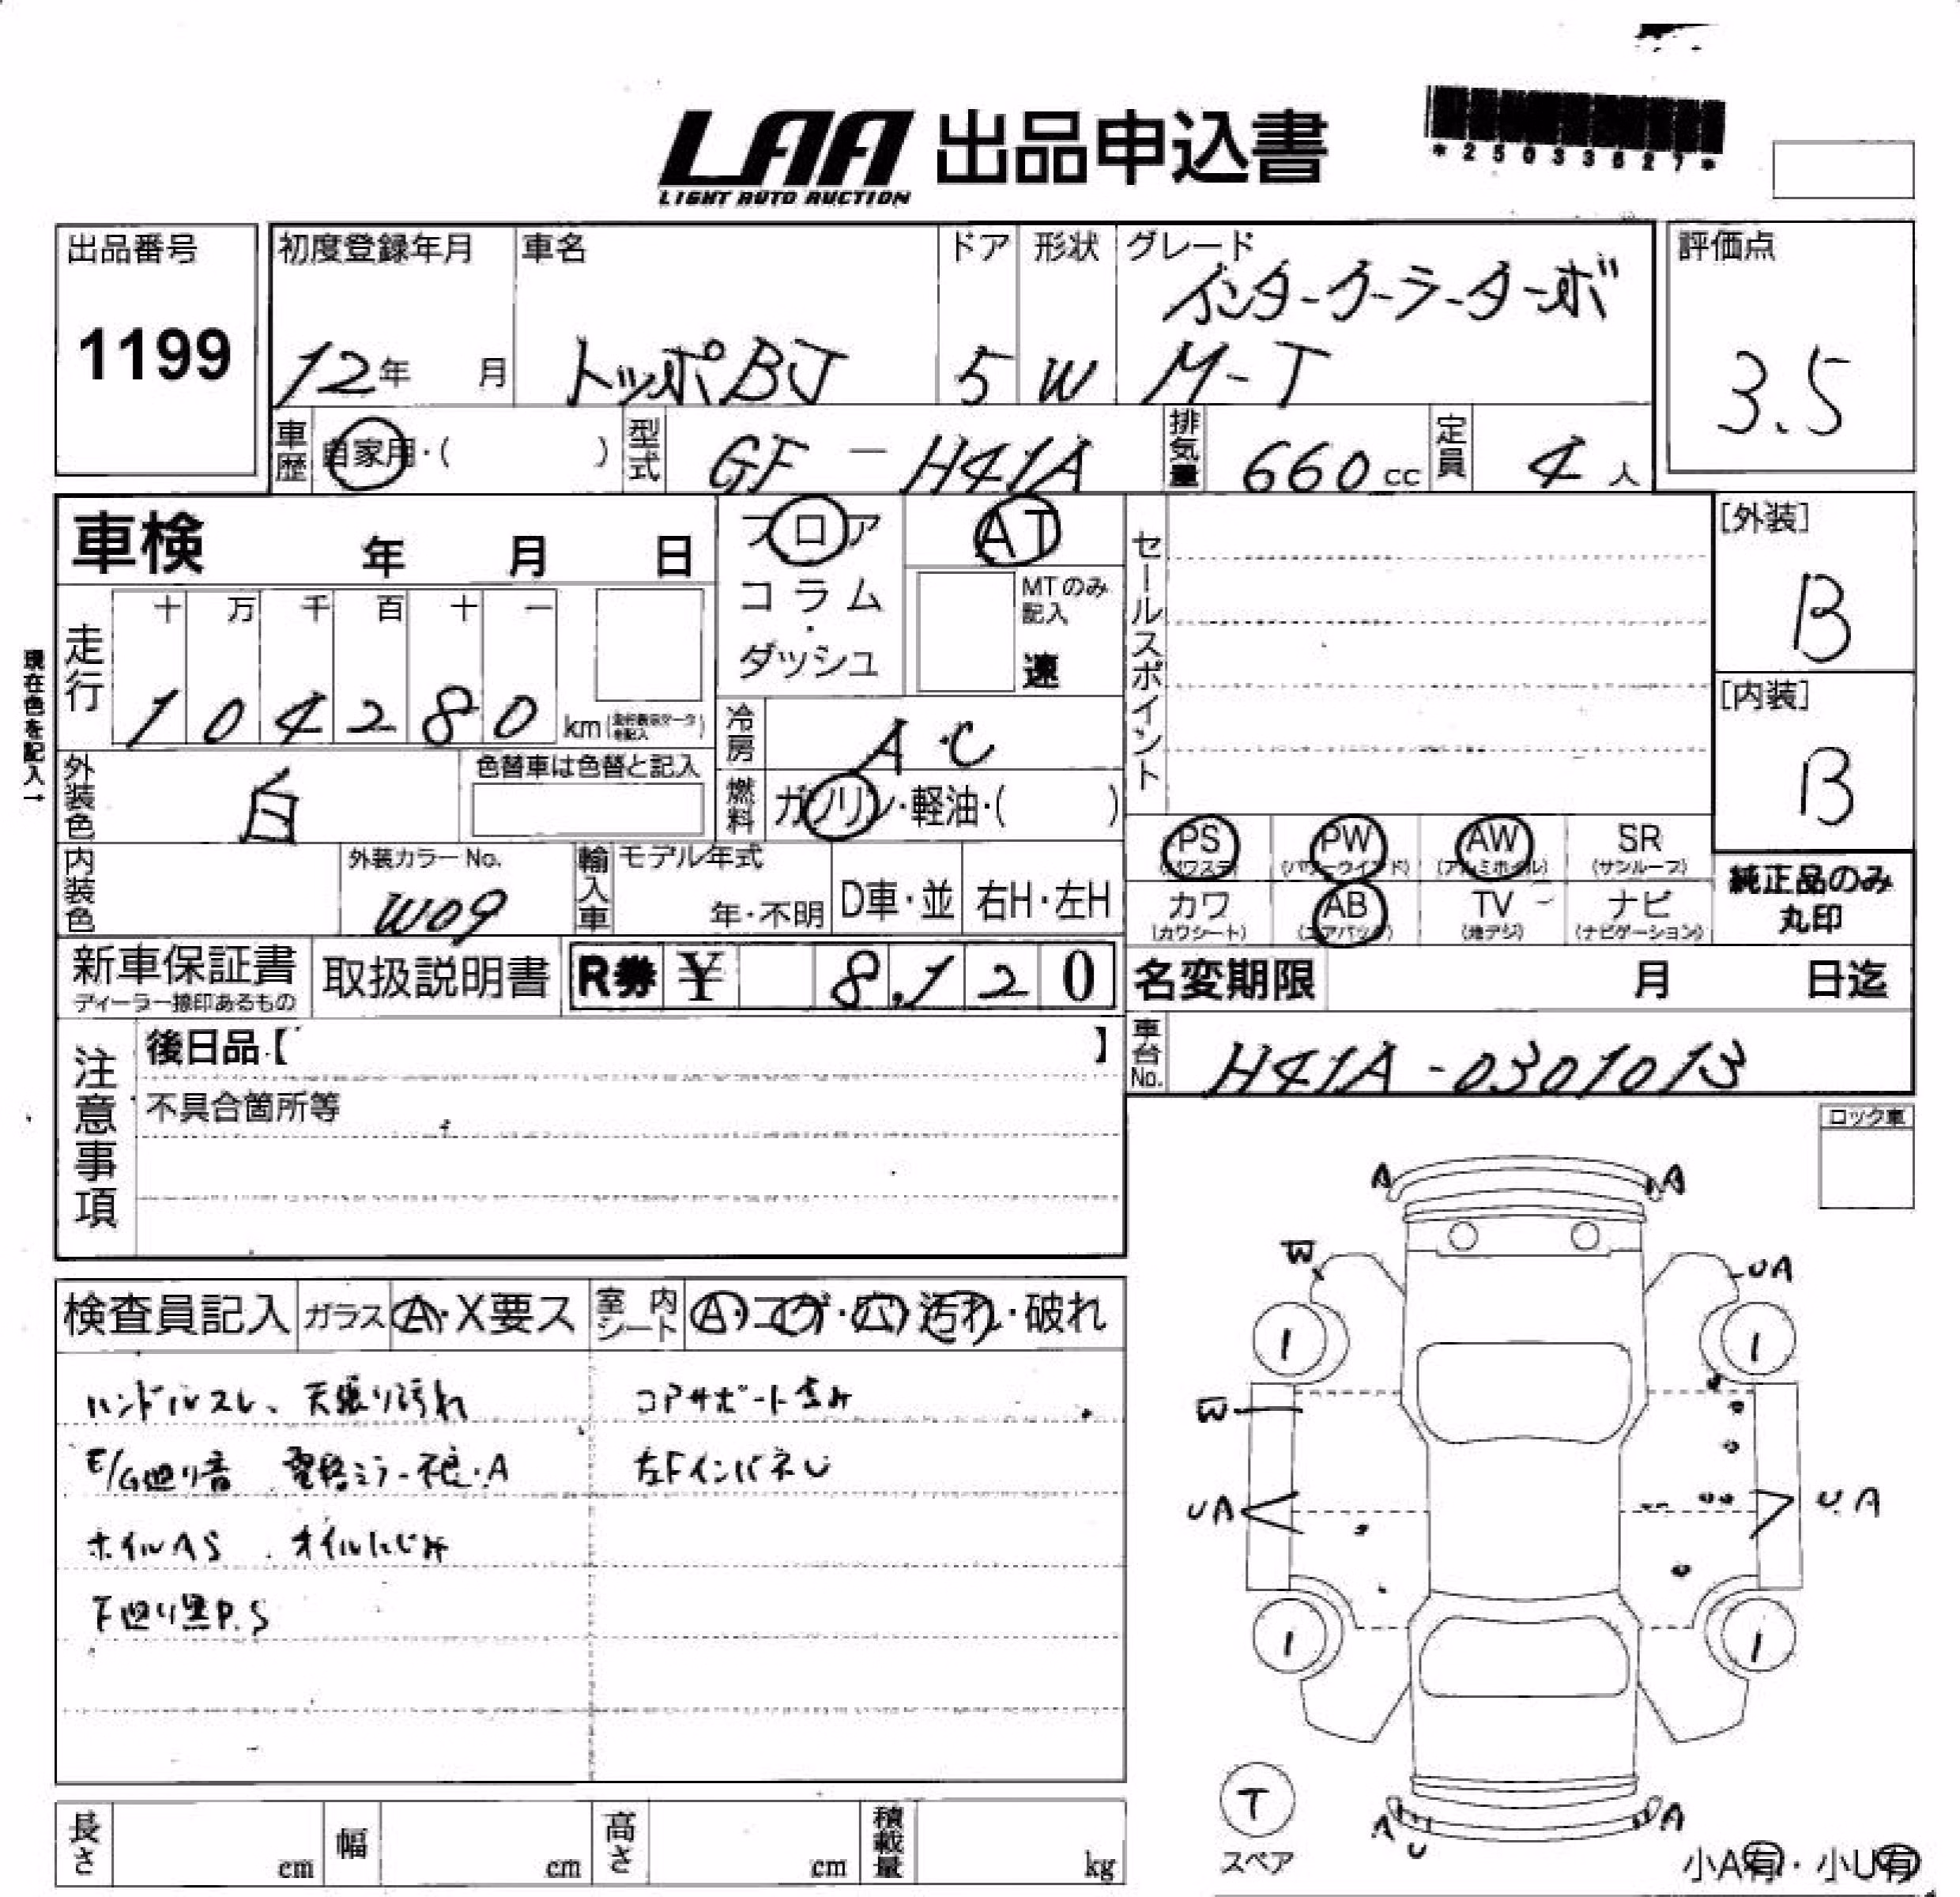 LAA 出品申込書
LIGHT AUTO AUCTION
*25033627*
出品番号
1199
初度登録年月
12年 月
車名
トッポBJ
ドア
5
形状
W
グレード
インタークーラーターボ
M-T
評価点
3.5
車歴 自家用・( )
型式 GF-H41A
排気量 660cc
定員 4人
車検 年 月 日
フロア
コラム
・
ダッシュ
AT
MTのみ
記入
速
セールスポイント
[外装]
B
[内装]
B
現在色を記入→
走行
十 万 千 百 十 一
1 0 4 2 8 0 km
冷房 A・C
燃料 ガソリン・軽油・( )
外装色 白
色替車は色替と記入
内装色
外装カラーNo.
W09
輸入車
モデル年式
年・不明
D車・並
右H・左H
PS
(パワステ)
PW
(パワーウインド)
AW
(アルミホイル)
SR
(サンルーフ)
カワ
(カワシート)
AB
(エアバッグ)
TV
(地デジ)
ナビ
(ナビゲーション)
純正品のみ
丸印
新車保証書
ディーラー捺印あるもの
取扱説明書
R券 ¥ 8,120
名変期限 月 日迄
車台No. H41A-0301013
注意事項
後日品【 】
不具合箇所等
ロック車
検査員記入
ガラス A・X要ス
室内シート A・コゲ・穴・汚れ・破れ
ハンドルスレ、天張り汚れ
コアサポート歪み
E/G廻り音 電格ミラー不良・A
左FインパネU
ホイルAS オイルにじみ
下廻り黒P.S
A
A
W
UA
1
1
W
UA
U A
1
1
T
スペア
A
U
A
小A有・小U有
長さ cm
幅 cm
高さ cm
積載量 kg